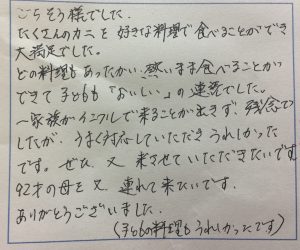 ごちそう様でした.
たくさんのカニを好きな料理で食べることができ
大満足でした。
どの料理もあったかい、熱いまま食べることが
できて子どもも「おいしい」の連発でした。
一家族がインフルで来ることが出きず、残念で
したが、うまく対応していただきうれしかった
です。ぜひ又来させていただきたいです
92才の母を又連れて来たいです。
ありがとうございました.
(子どもの料理もうれしかったです)